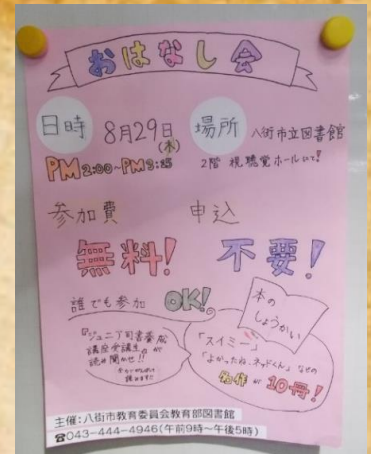 おはなし会
日時 8月29日(木)
PM2:00~PM3:
場所 八街市立図書館
2階 視聴覚ホールにて!
参加費
無料!
申込
不要!
誰でも参加 OK!
本の
しょうかい
『ジュニア司書養成
講座受講生』が
読み聞かせ!!
「スイミー」
「よかったね、ネッドくん」などの
名作が10冊!
主催:八街市教育委員会教育部図書館
☎043-444-4946(午前9時~午後5時)